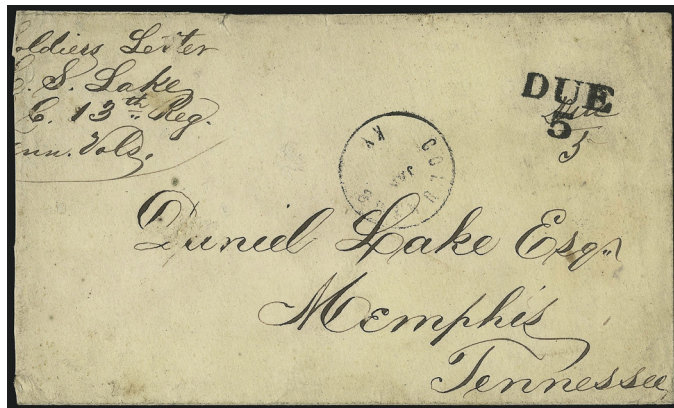 oldiers Letter
C. S. Lake
C. 13th Reg.
enn. Vols.
DUE
5
Due
5
COLU
KY
JAN
Daniel Lake Esqr
Memphis
Tennessee